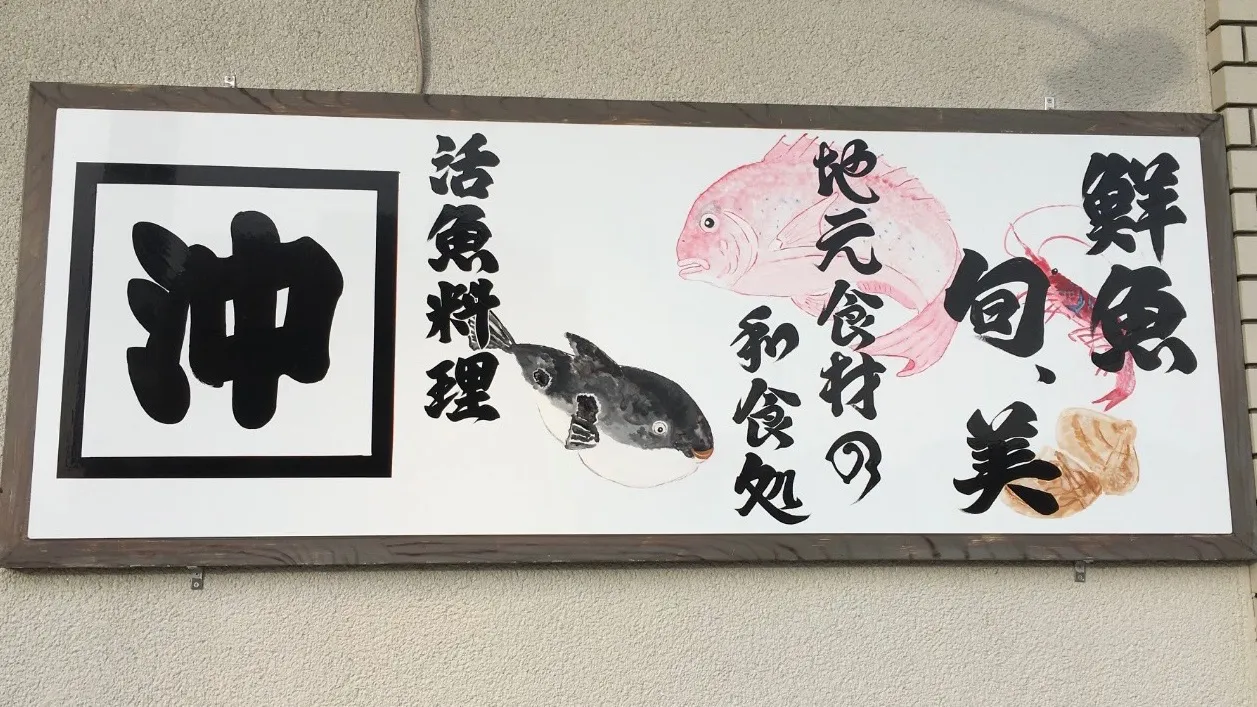 鮮魚
旬、美
地元食材の
和食処
活魚料理
沖